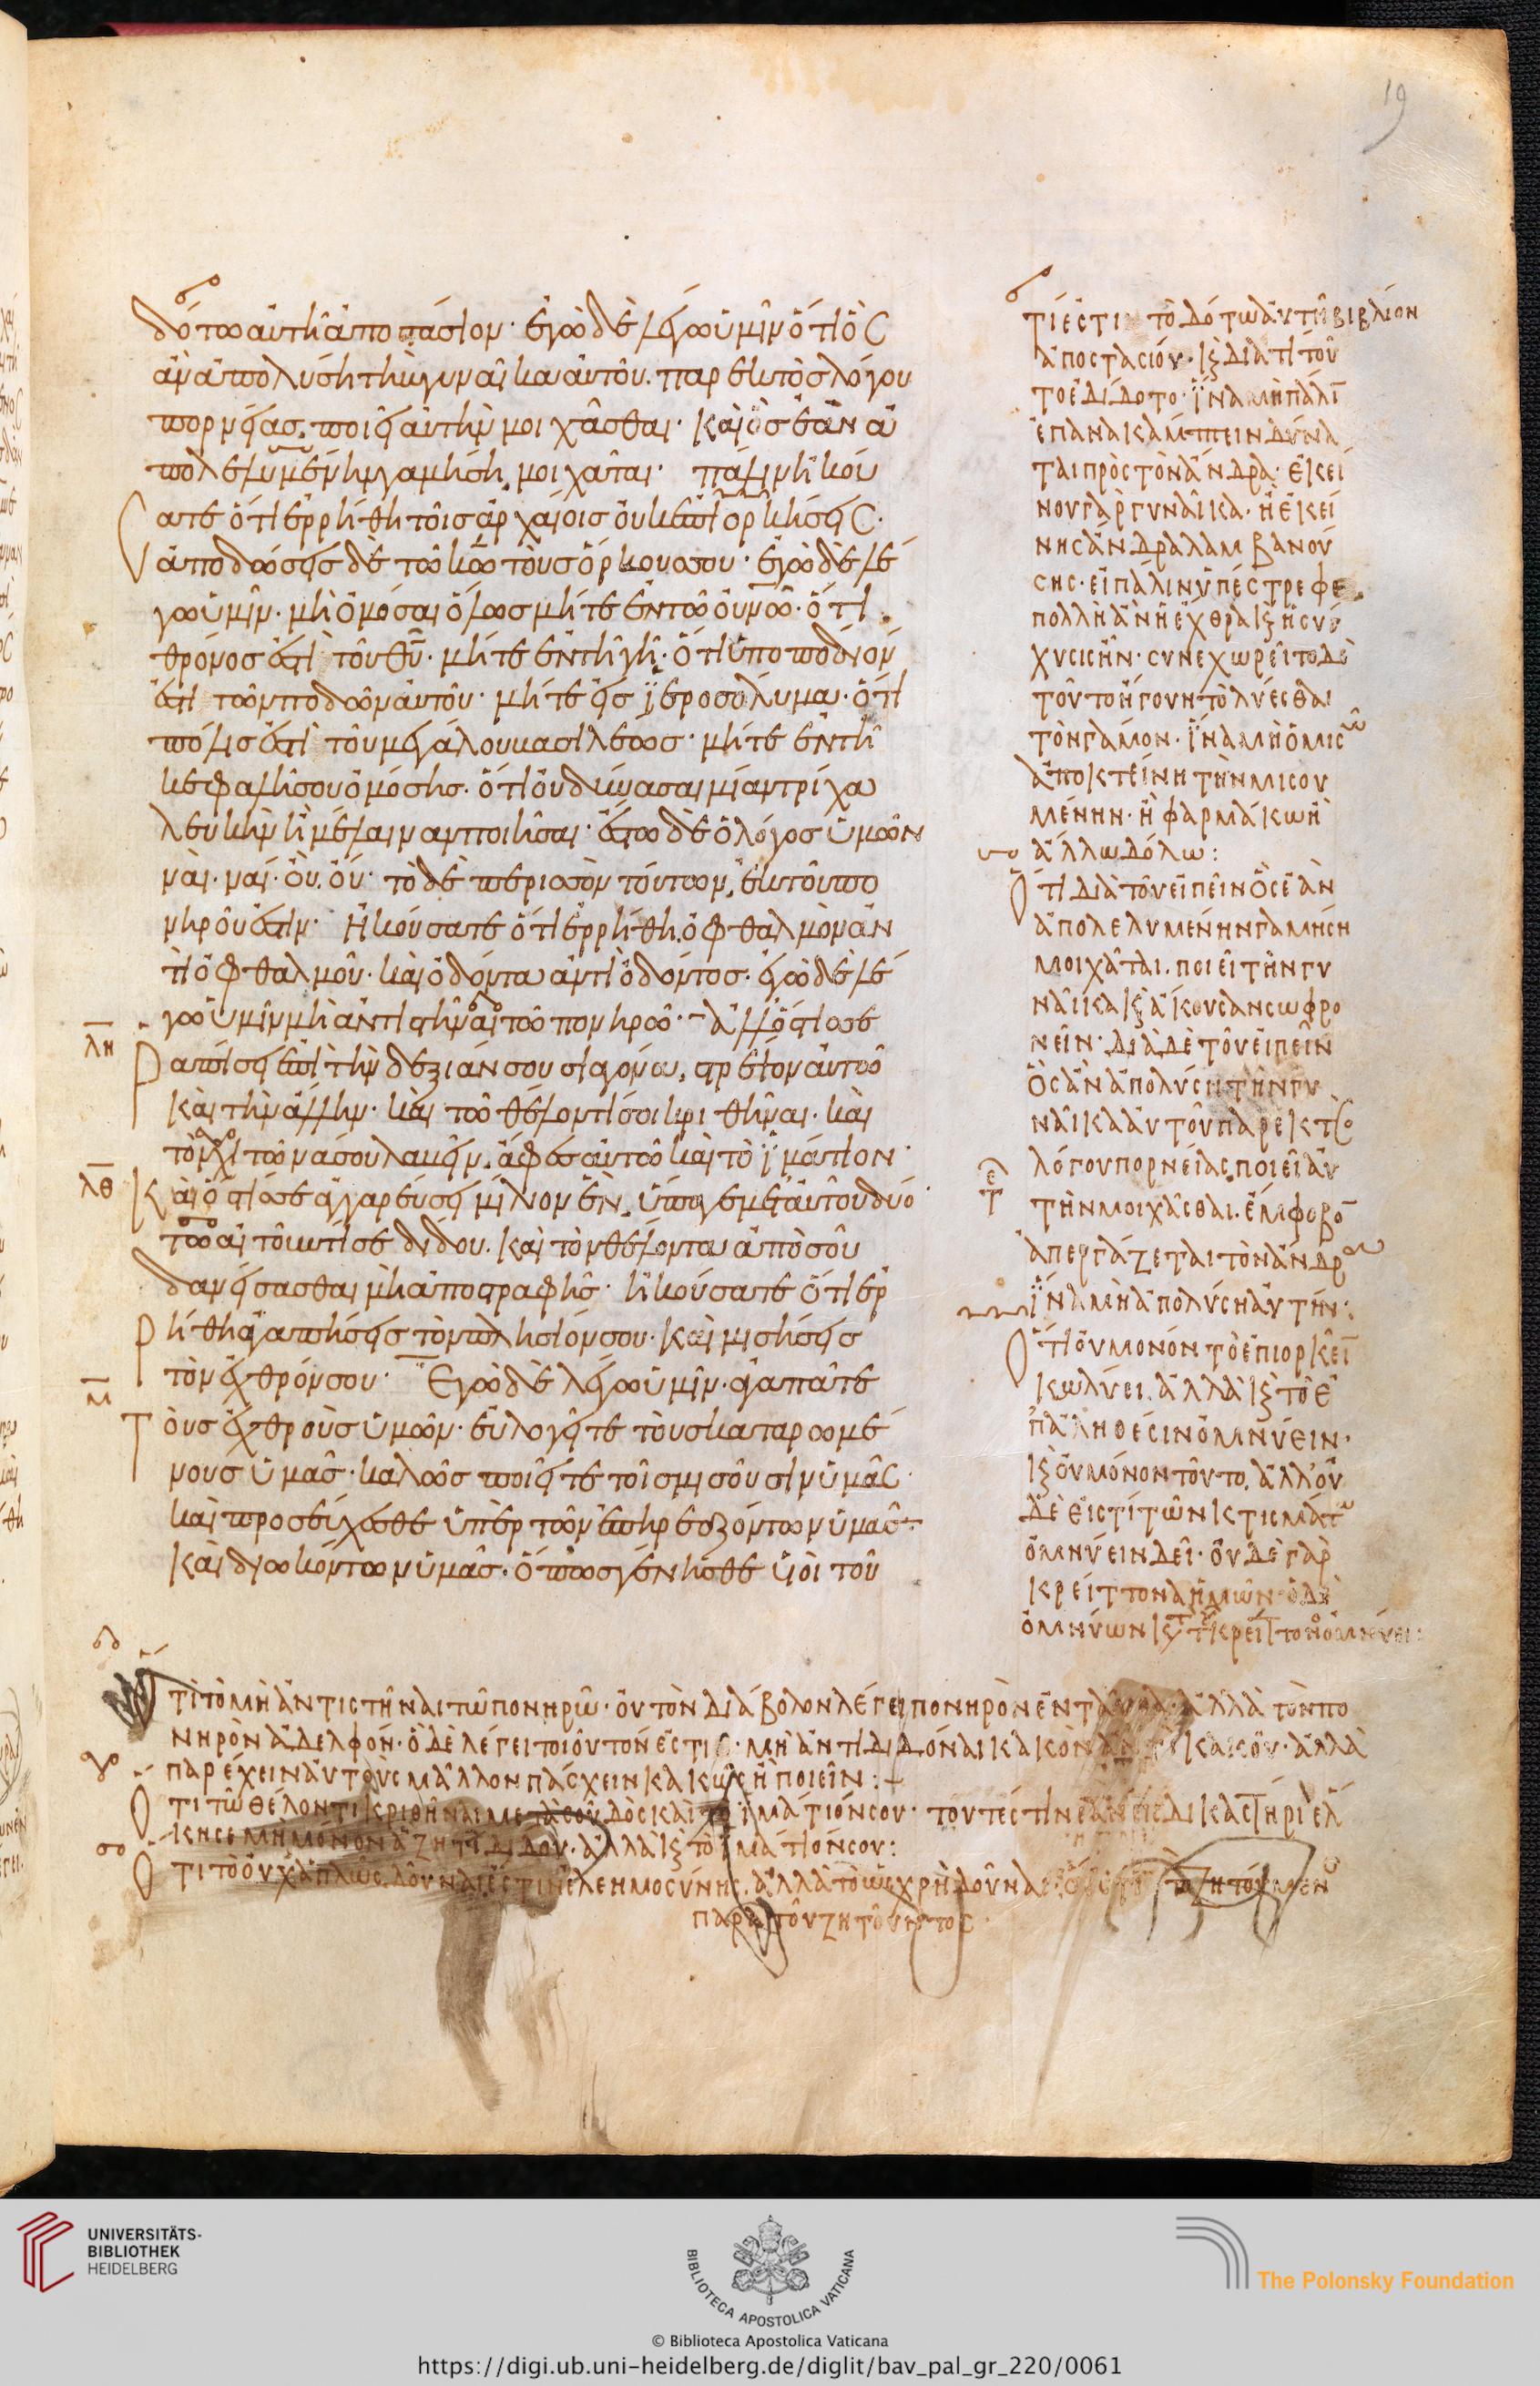 19
δότω αὐτῆ ἀποστάσιον· ἐγὼ δὲ λέγω ὑμῖν ὅτι ὃς
ἂν ἀπολύση τὴν γυναῖκα αὐτοῦ. παρεκτὸς λόγου
πορνείας, ποιεῖ αὐτὴν μοιχᾶσθαι· καὶ ὃς ἐὰν ἀ
πολελυμένην γαμήση, μοιχᾶται· πάλιν ἠκού
σατε ὅτι ἐρρήθη τοῖς ἀρχαίοις οὐκ ἐπιορκήσεις·
ἀποδώσεις δὲ τῶ κῶ τοὺς ὅρκους σου· ἐγὼ δὲ λέ
γω ὑμῖν· μὴ ὀμόσαι ὅλως μήτε ἐν τῶ οὐνῶ· ὅτι
θρόνος ἐστὶ τοῦ θυ· μήτε ἐν τῆ γῆ· ὅτι ὑποπόδιόν
ἐστι τῶν ποδῶν αὐτοῦ· μήτε εἰς ϊεροσόλυμα· ὅτι
πόλις ἐστὶ τοῦ μεγάλου βασιλέως· μήτε ἐν τῆ
κεφαλῆ σου ὀμόσης· ὅτι οὐ δύνασαι μίαν τρίχα
λευκὴν ἢ μέλαιναν ποιῆσαι· ἔστω δὲ ὁ λόγος ὑμῶν
ναὶ· ναί· οὒ. οὔ· τὸ δὲ περισσὸν τούτων, ἐκ τοῦ πο
νηροῦ ἐστιν· Ἠκούσατε ὅτι ἐρρήθη. ὀφθαλμὸν ἀν
τὶ ὀφθαλμοῦ· καὶ ὀδόντα ἀντὶ ὀδόντος· ἐγὼ δὲ λέ
γω ὑμῖν μὴ ἀντιστῆναι τῶ πονηρῶ· ἀλλ' ὅστις σε
λη
ραπίσει ἐπὶ τὴν δεξιάν σου σιαγόνα, στρέψον αὐτῶ
καὶ τὴν ἄλλην· καὶ τῶ θέλοντί σοι κριθῆναι· καὶ
τὸν χιτῶνά σου λαβεῖν, ἄφες αὐτῶ καὶ τὸ ϊμάτιον·
λθ
Καὶ ὅστις σε ἀγγαρεύσει μίλιον ἓν, ὕπαγε μετ' αὐτοῦ δύο·
τῶ αἰτοῦντί σε δίδου. καὶ τὸν θέλοντα ἀπὸ σοῦ
δανείσασθαι μὴ ἀποστραφῆς· ἠκούσατε ὅτι ἐρ
ρήθη ἀγαπήσεις τὸν πλησίον σου· καὶ μισήσεις
τὸν ἐχθρόν σου· Ἐγὼ δὲ λέγω ὑμῖν· ἀγαπᾶτε
μ
Τοὺς ἐχθροὺς ὑμῶν· εὐλογεῖτε τοὺς καταρωμέ
νους ὑμᾶς· καλῶς ποιεῖτε τοῖς μισοῦσιν ὑμᾶς·
καὶ προσεύχεσθε ὑπὲρ τῶν ἐπηρεαζόντων ὑμᾶς·
καὶ διωκόντων ὑμᾶς· ὅπως γένησθε ὑιοὶ τοῦ
Τί ἐστι τὸ δότω αὐτῆ βιβλίον
ἀποστασίου· κ διατί τοῦ
το ἐδίδοτο· ϊνα μὴ πάλι
ἐπανακάμπτειν δύνα
ται πρὸς τὸν ἄνδρα· ἐκεί
νου γὰρ γυναῖκα· ἢ ἐκεί
νης ἄνδρα λαμβανού
σης· εἰ πάλιν ὑπέστρεφε
πολλὴ ἂν ἦ ἔχθρα κ ἡ σύγ
χυσις ἦν· συνεχωρεῖτο δὲ
τοῦτο ἤγουν τὸ λύεσθαι
τὸν γάμον· ϊνα μὴ ὁ μισῶ
ἀποκτείνη τὴν μισου
μένην· ἢ φαρμάκω ἢ
ἄλλω δόλω:
Ὅτι διὰ τοῦ εἰπεῖν ὃς ἐὰν
ἀπολελυμένην γαμήση
μοιχᾶται. ποιεῖ τὴν γυ
ναῖκα κ ἄκουσαν σωφρο
νεῖν· διὰ δὲ τοῦ εἰπεῖν
ὃς ἂν ἀπολύση τὴν γυ
ναῖκα αὐτοῦ παρεκτὸς
λόγου πορνείας, ποιεῖ αὐ
τὴν μοιχᾶσθαι. ἔμφοβο
ἀπεργάζεται τὸν ἄνδρα
ϊνα μὴ ἀπολύση αὐτήν:
Ὅτι οὐ μόνον τὸ ἐπιορκεῖ
κωλύει. ἀλλὰ κ τὸ ἐ
π' ἀληθέσιν ὀμνύειν·
κ οὐ μόνον τοῦτο. ἀλλ' οὐ
δὲ εἰς τί τῶν κτισμάτ
ὀμνύειν δεῖ· οὐδὲ γὰρ
κρείττονα ἡμῶν· ὁ δὲ
ὀμνύων κτ κρείττονο ὀμνύει:
Ὅτι τὸ μὴ ἀντιστῆναι τῶ πονηρῶ· οὐ τὸν διάβολον λέγει πονηρὸν ἐνταῦθα· ἀλλὰ τὸν πο
νηρὸν ἀδελφόν· ὃ δὲ λέγει τοιοῦτόν ἐστι· μὴ ἀντιδιδόναι κακὸν ἀντὶ κακοῦ· ἀλλὰ
παρέχειν αὐτοὺς μᾶλλον πάσχειν κακῶς ἢ ποιεῖν:
Ὅτι τῶ θέλοντι κριθῆναι μετὰ σοῦ δὸς καὶ τὸ ϊμάτιόν σου· τουτέστιν ἐὰν εἰς δικαστήρι ἑλ
κη σε μὴ μόνον ἃ ζητεῖ δίδου· ἀλλὰ κ τὸ ϊμάτιόν σου:
Ὅτι τὸ οὐχ ἁπλῶς δοῦναι ἐστιν ἐλεημοσύνη. ἀλλὰ τὸ ὡς χρὴ δοῦναι ζητούμεν
παρὰ τοῦ ζητοῦντος·
UNIVERSITÄTS-
BIBLIOTHEK
HEIDELBERG
BIBLIOTECA APOSTOLICA VATICANA
The Polonsky Foundation
© Biblioteca Apostolica Vaticana
https://digi.ub.uni-heidelberg.de/diglit/bav_pal_gr_220/0061